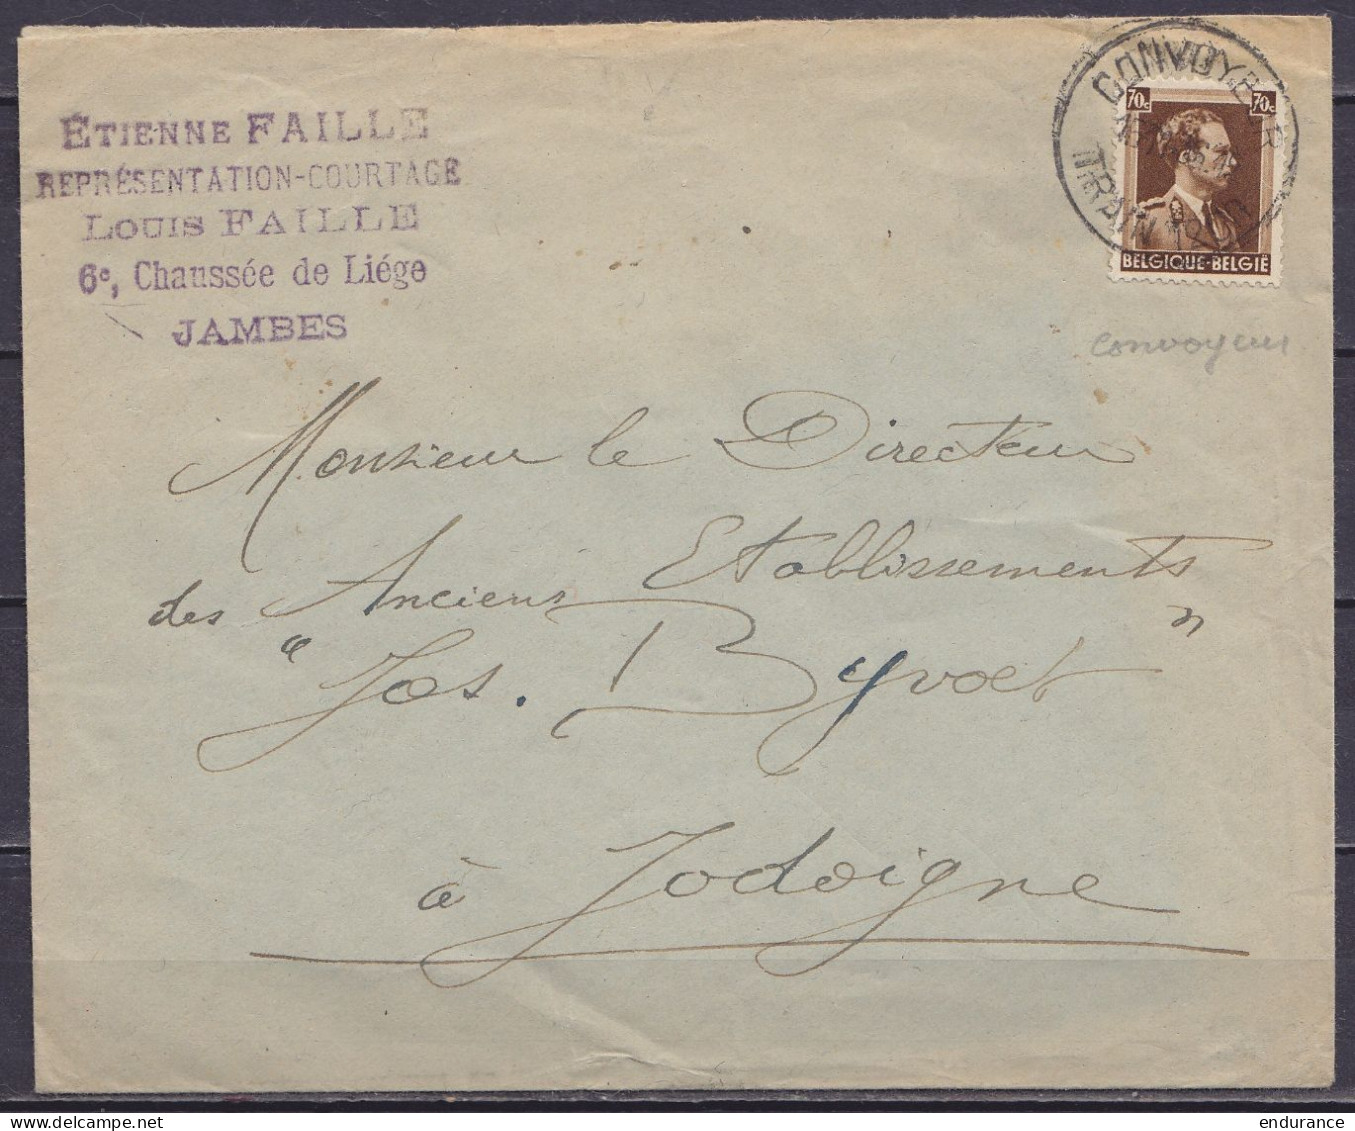 ÉTIENNE FAILLE
REPRÉSENTATION-COURTAGE
LOUIS FAILLE
6e, Chaussée de Liége
JAMBES
CONVOYEUR
TRAIN
70c 70c
BELGIQUE-BELGIË
convoyeur
Monsieur le Directeur
des Anciens Etablissements
"Jos. Byvoet"
à Jodoigne
endurance